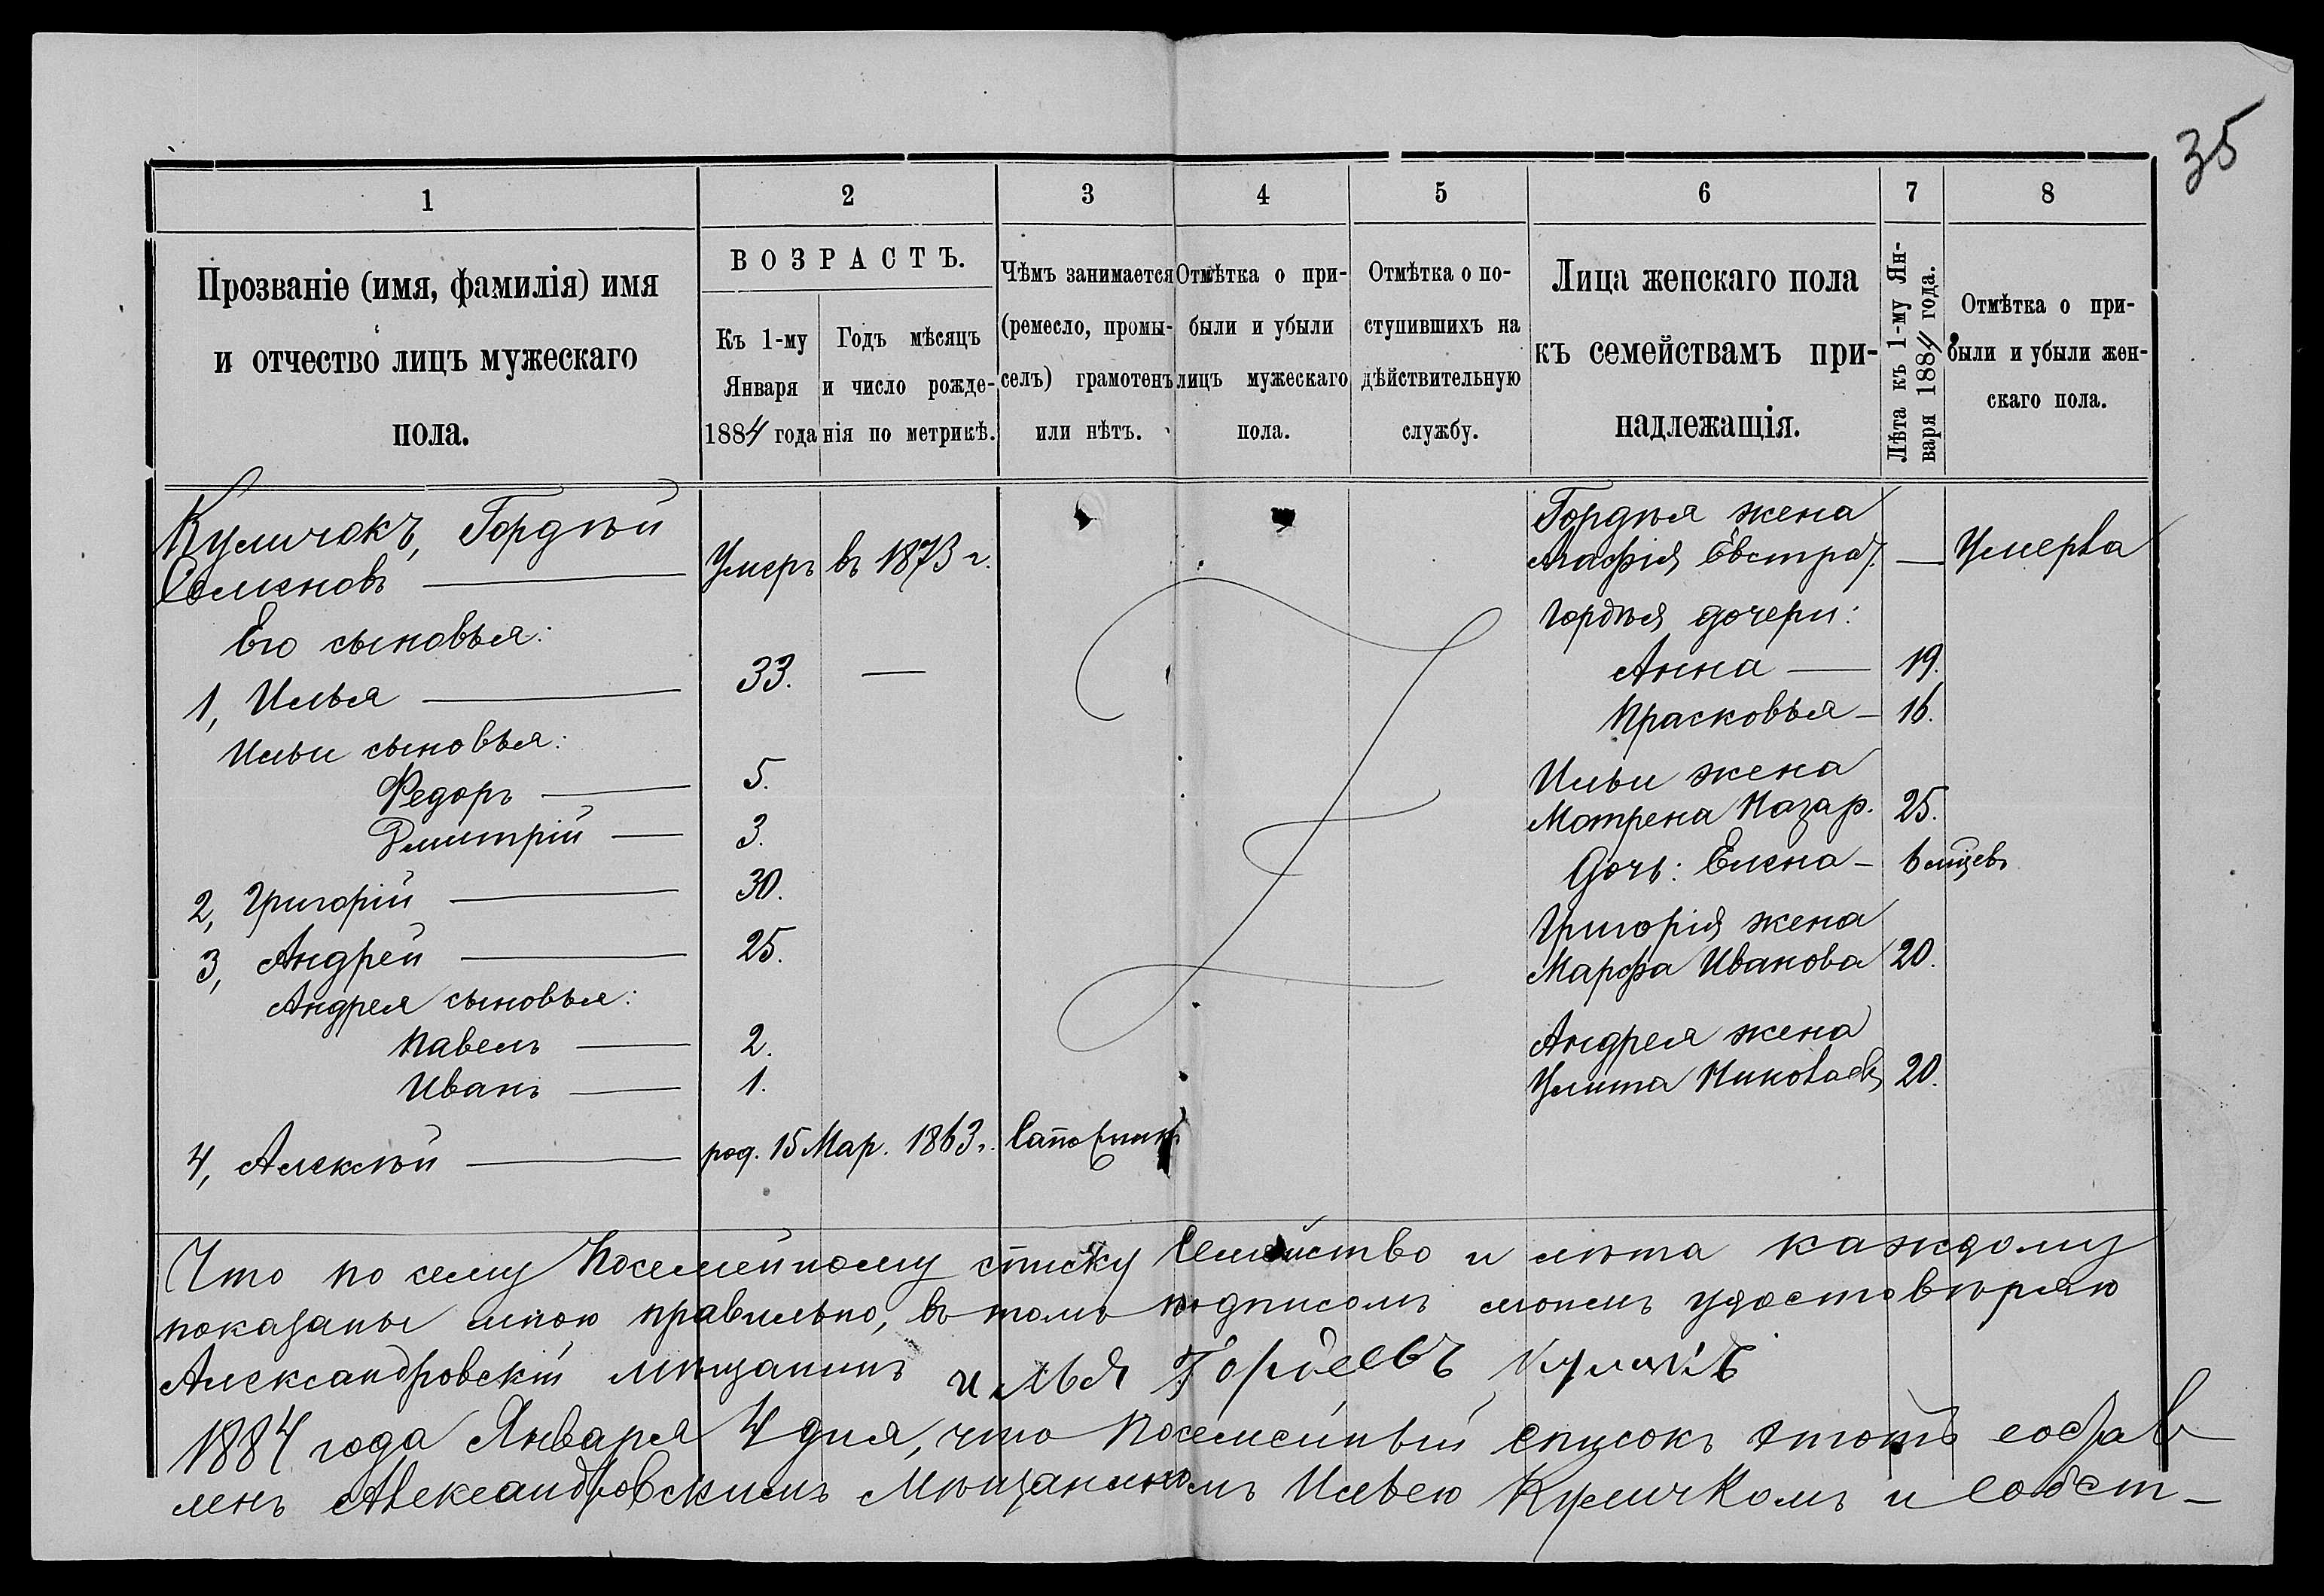 35
1
2
3
4
5
6
7
8
Прозваніе (имя, фамилія) имя
и отчество лицъ мужескаго
пола.
ВОЗРАСТЪ.
Къ 1-му
Января
1884 года
Годъ мѣсяцъ
и число рожде-
нія по метрикѣ.
Чѣмъ занимается
(ремесло, промы-
селъ) грамотенъ
или нѣтъ.
Отмѣтка о при-
были и убыли
лицъ мужескаго
пола.
Отмѣтка о по-
ступившихъ на
дѣйствительную
службу.
Лица женскаго пола
къ семействамъ при-
надлежащія.
Лѣта къ 1-му Ян-
варя 1884 года.
Отмѣтка о при-
были и убыли жен-
скаго пола.
Куличокъ, Гордѣй
Семеновъ — Умеръ въ 1873 г.
Его сыновья:
1, Илья — 33. —
Ильи сыновья:
Федоръ — 5.
Дмитрій — 3.
2, Григорій — 30.
3, Андрей — 25.
Андрея сыновья:
Павелъ — 2.
Иванъ — 1.
4, Алексѣй — род. 15 Мар. 1863 г.
Гордѣя жена
Агафія Евстраѳ. — Умерла
Гордѣя дочери:
Анна — 19.
Прасковья — 16.
Ильи жена
Мотрена Назар. 25.
Дочь: Елена — 6 мцевъ
Григорія жена
Марфа Иванова 20.
Андрея жена
Улита Николаев 20.
Что по сему посемейному списку семейство и лѣта каждому
показаны мною правильно, въ томъ подписомъ моимъ удостовѣряю
Александровскій мѣщанинъ Илья Гордеевъ
1884 года Января 4 дня, что посемейный списокъ этотъ состав
ленъ Александровскимъ Мѣщаниномъ Ильею Куличкомъ и собст-